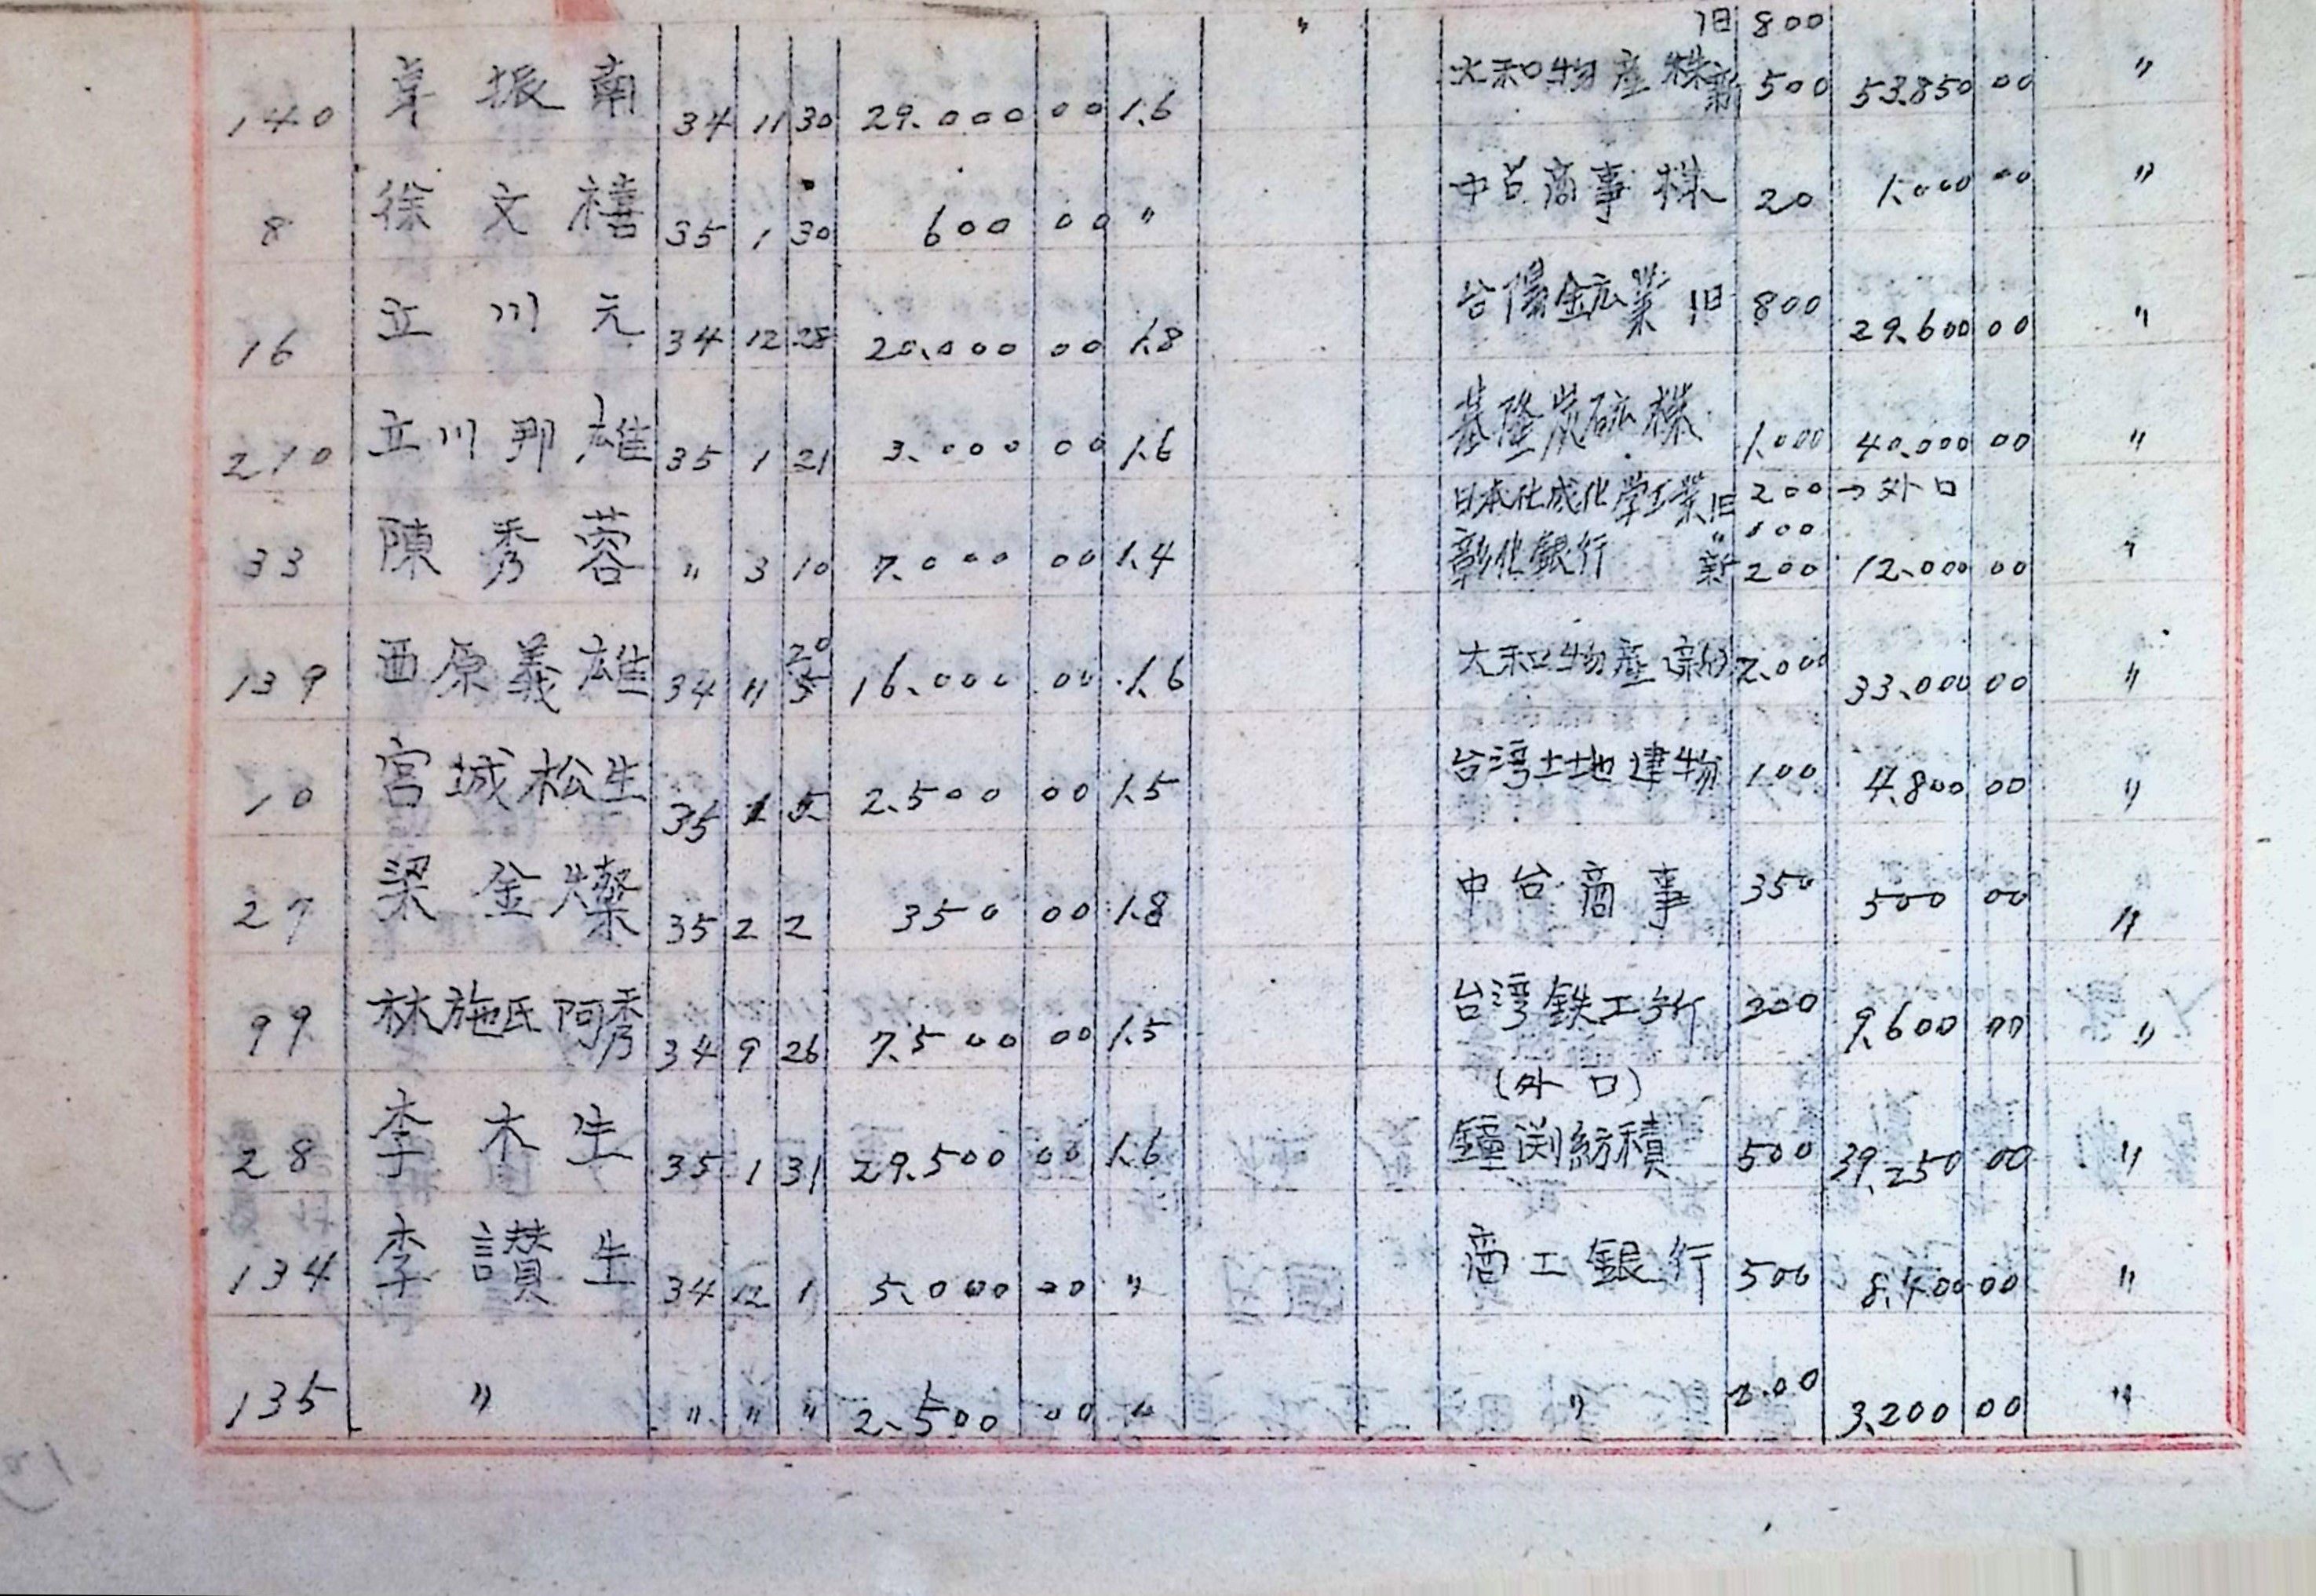 〃 旧 800
140 韋振南 34 11 30 29.000 00 1.6 大和物産株新 500 53.850 00 〃
8 徐文禧 35 1 30 600 00 〃 中台商事株 20 1.000 00 〃
16 立川元 34 12 28 20.000 00 1.8 台陽鉱業旧 800 29.600 00 〃
210 立川邦雄 35 1 21 3.000 00 1.6 基隆炭砿株 1.000 40.000 00 〃
日本化成化学工業旧 200 →外口
〃 100
33 陳秀蓉 〃 3 10 7.000 00 1.4 彰化銀行 新 200 12.000 00 〃
139 西原義雄 34 11 16.000 00 1.6 大和物産(新) 2.000 33.000 00 〃
10 宮城松生 35 2.500 00 1.5 台湾土地建物 100 4.800 00 〃
27 梁金燦 35 2 2 350 00 1.8 中台商事 350 500 00 〃
99 林施氏阿秀 34 9 26 7.500 00 1.5 台湾鉄工所 200 9.600 00 〃
(外口)
28 李木生 35 1 31 29.500 00 1.6 鐘渕紡積 500 39.250 00 〃
134 李讃生 34 12 1 5.000 00 〃 商工銀行 500 8.400 00 〃
135 〃 〃 〃 〃 2.500 00 〃 〃 200 3.200 00 〃